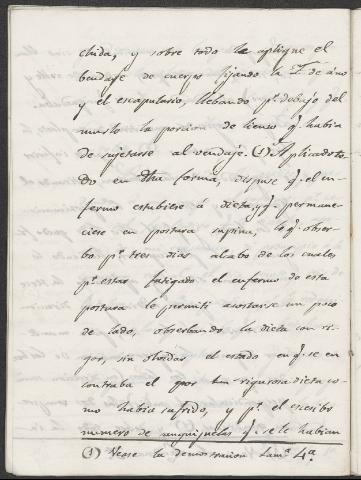 chida, y sobre todo le aplique el
bendaje de cuerpo fijando la T. de ano
y el escapulario, llebando pr. debajo del
muslo la porcion de lienzo q. habia
de sujetarse al vendaje. (1) Aplicado to
do en dha forma, dispuse q. el en-
fermo estubiere á dieta, y q. permane-
ciese en postura supina, lo q. obser-
bo pr. tres dias al cabo de los cuales
pr. estar fatigado el enfermo de esta
postura le permiti acostarse un poco
de lado, obserbando la dieta con ri-
gor, sin olvidar el estado en q. se en
contraba el por tan rigurosa dieta co-
mo habia sufrido, y pr. el escesibo
numero de sanguijuelas q. se le habian
(1) Vease la demostracion Lama. 4a.